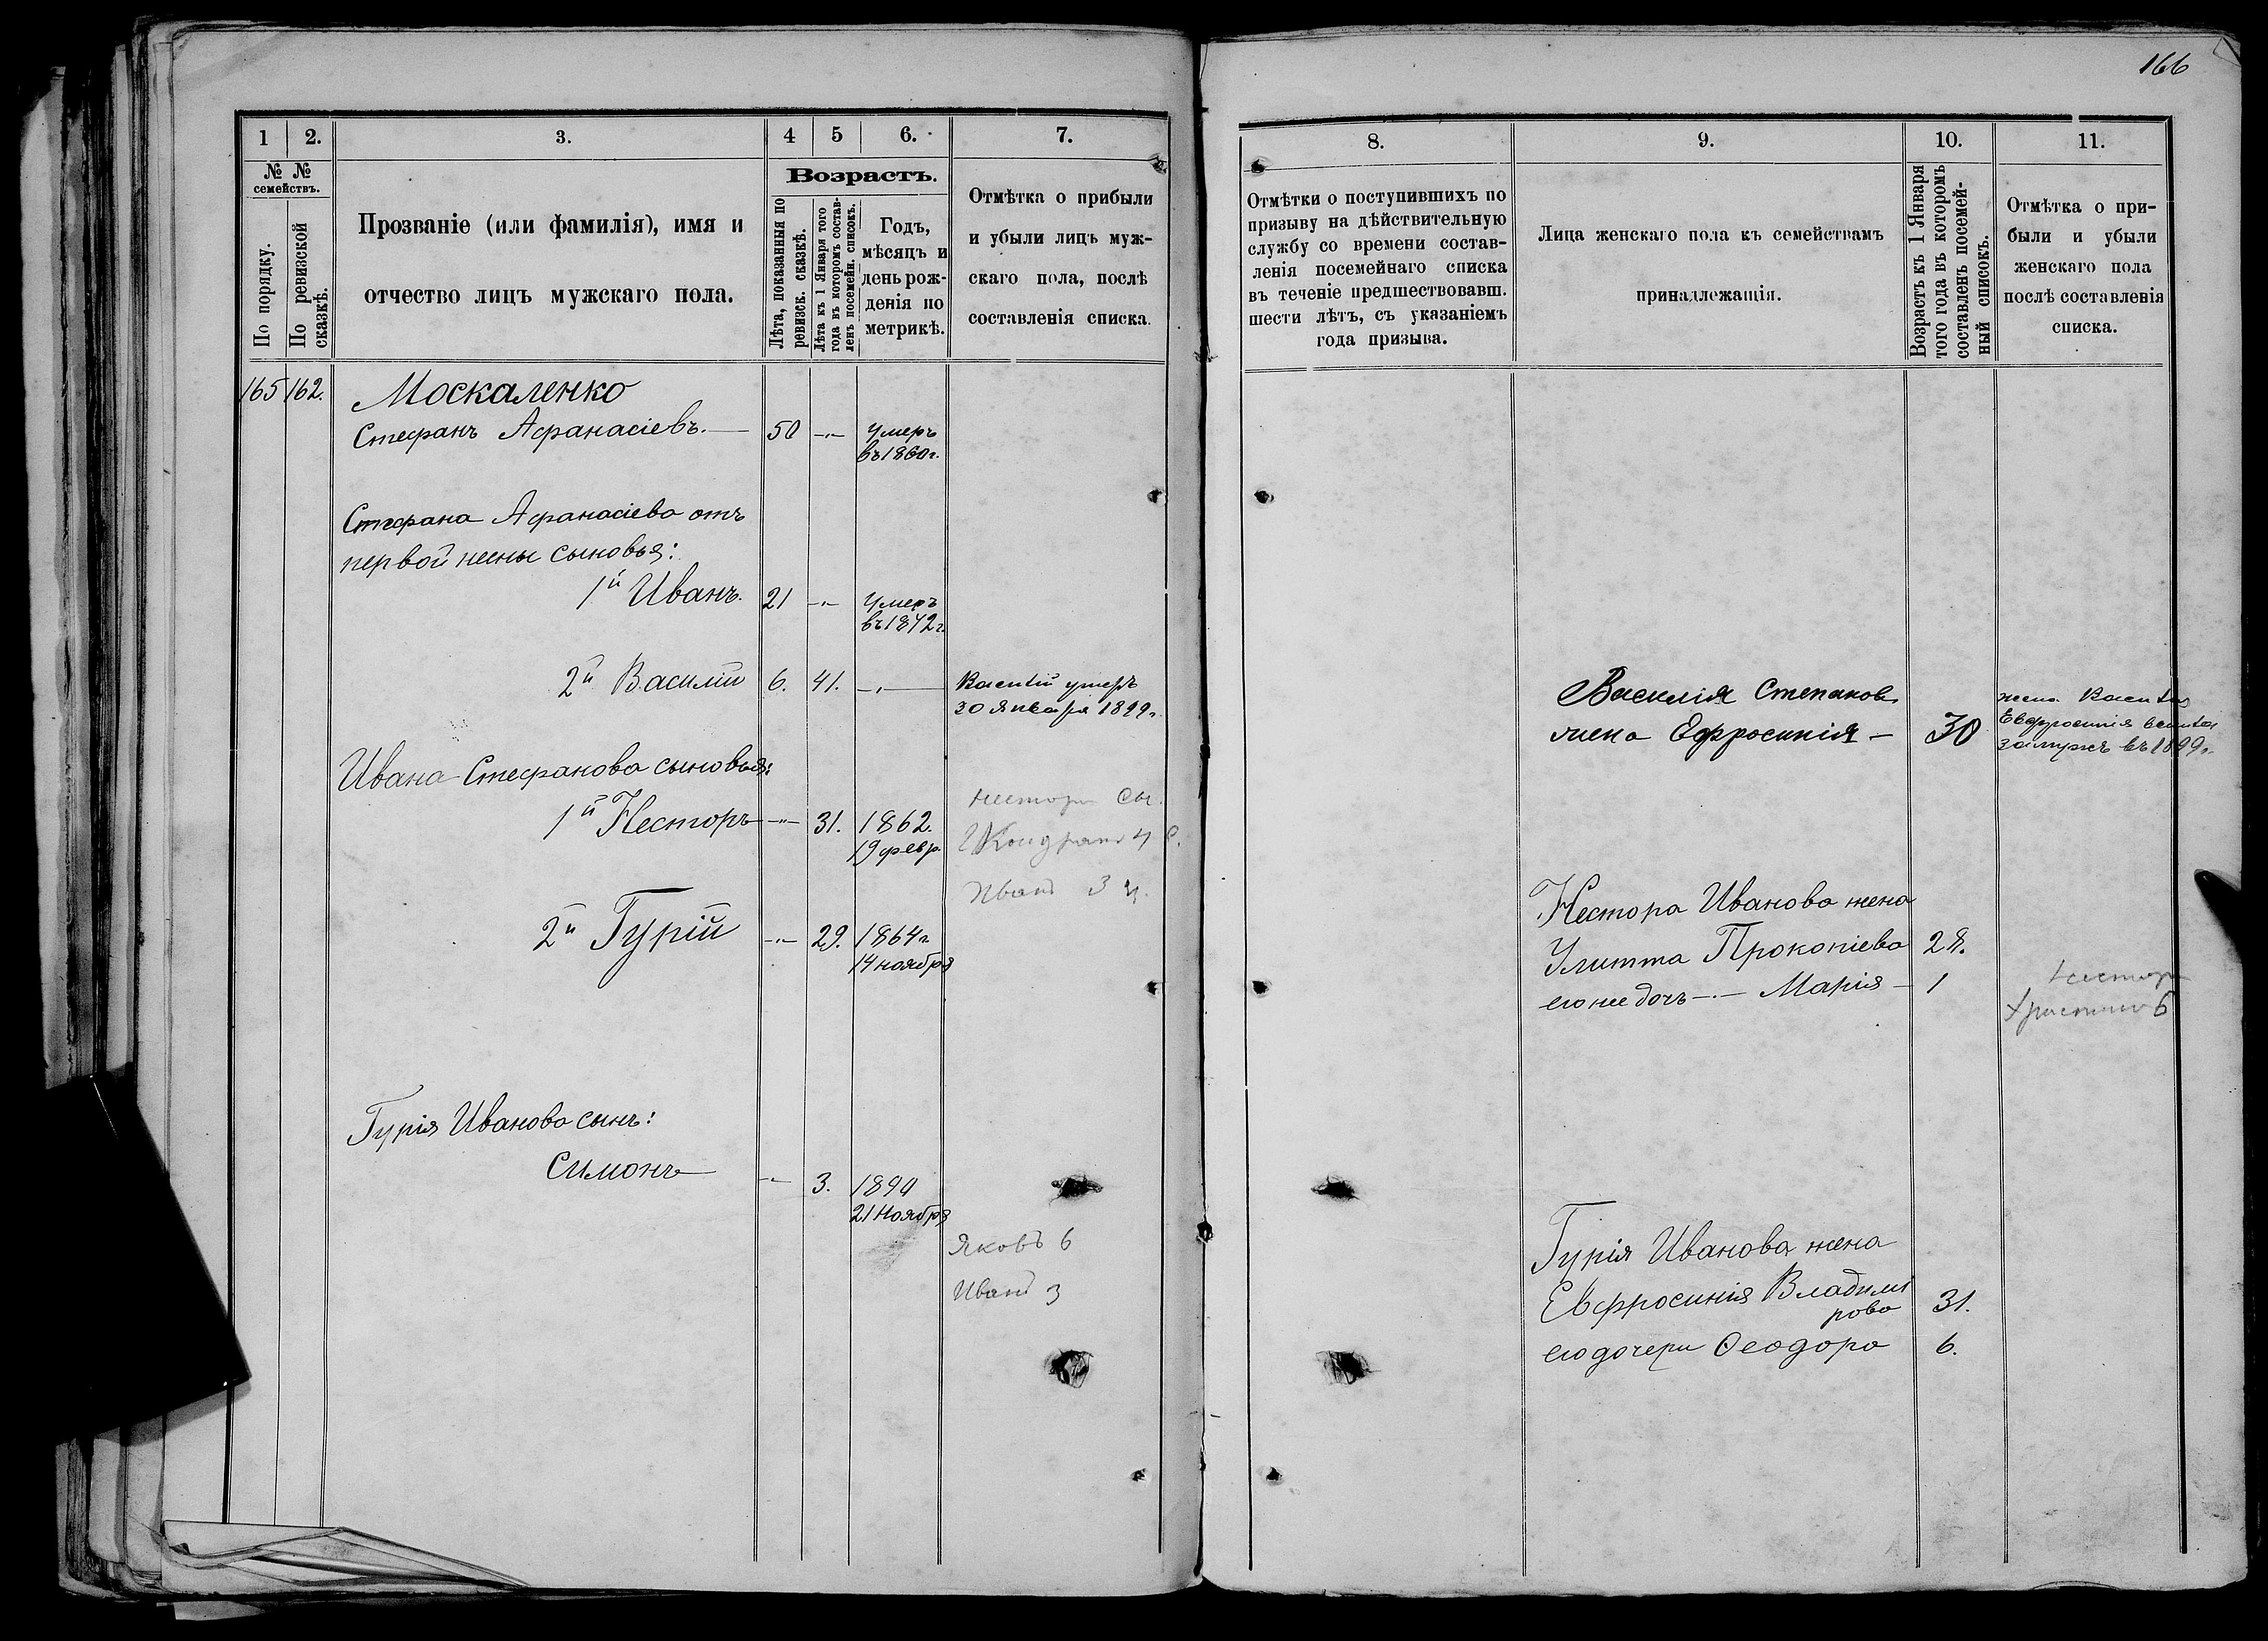 166
1
2.
3.
4
5
6.
7.
№ №
семействъ.
По порядку.
По ревизской
сказкѣ.
Прозваніе (или фамилія), имя и
отчество лицъ мужскаго пола.
Возрастъ.
Лѣта, показанныя по
ревизск. сказкѣ.
Лѣта къ 1 Января того
года въ которомъ состав-
ленъ посемейн. списокъ.
Годъ,
мѣсяцъ и
день рож-
денія по
метрикѣ.
Отмѣтка о прибыли
и убыли лицъ муж-
скаго пола, послѣ
составленія списка.
165 162.
Москаленко
Стефанъ Афанасіевъ. 50 Умеръ
въ 1860г.
Стефана Афанасіева отъ
первой жены сыновья:
1й Иванъ. 21 Умеръ
въ 1872г.
2й Василій 6. 41. Василій умеръ
30 января 1899г.
Ивана Стефанова сыновья:
1й Несторъ 31. 1862.
19 февр.
Кондрат 4
Иванъ 3
2й Гурій 29. 1864г
14 ноября
Гурія Иванова сынъ:
Симонъ 3. 1890
21 Ноября
Яковъ 6
Иванъ 3
8.
9.
10.
11.
Отмѣтки о поступившихъ по
призыву на дѣйствительную
службу со времени состав-
ленія посемейнаго списка
въ теченіе предшествовавш.
шести лѣтъ, съ указаніемъ
года призыва.
Лица женскаго пола къ семействамъ
принадлежащія.
Возрастъ къ 1 Января
того года въ которомъ
составленъ посемей-
ный списокъ.
Отмѣтка о при-
были и убыли
женскаго пола
послѣ составленія
списка.
Василія Степанов
жена Ефросинія – 30
жена Василія
Евфросинія вышла
замужъ въ 1899г.
Нестора Иванова жена
Улитта Прокопіева 28.
его же дочь Марія – 1
Нестор
Христина 6
Гурія Иванова жена
Евфросинія Владимі
рова 31.
его дочери Ѳеодора 6.